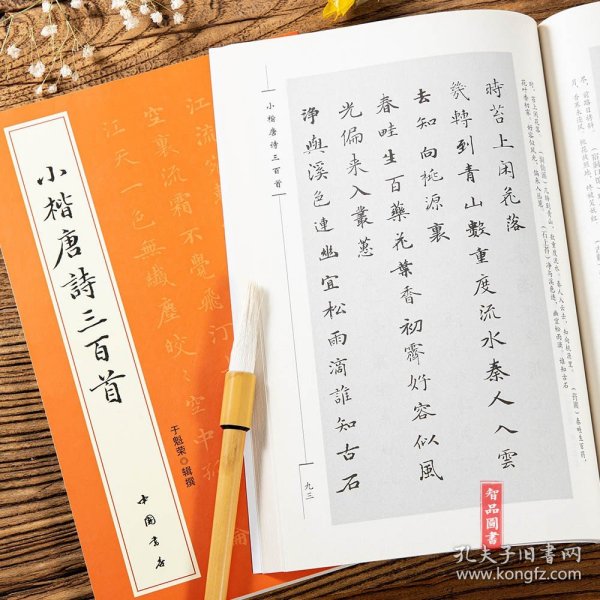 小楷唐詩三百首
于魁荣 辑撰
中國書店
江流
空裏流霜不覺飛汀
江天一色無纖塵皎皎空中孤
小楷唐诗三百首
九三
時苔上闲花落
幾轉到青山數重度流水秦人入雲
去知向桃源裏
春畦生百藥花葉香初霽好容似風
光偏来入叢蕙
浄與溪色連幽宜松雨滴誰知古石
智品圖書
孔夫子旧书网
www.kongfz.com